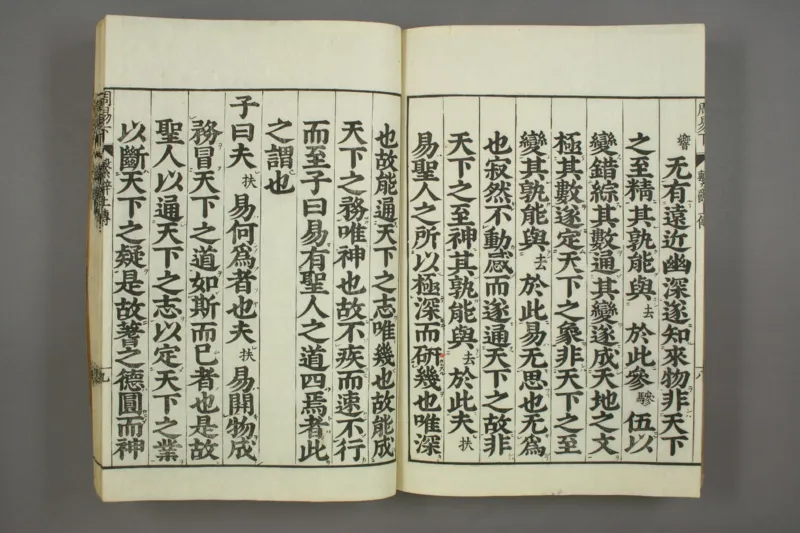 響 无有遠近幽深遂知來物非天下
之至精其孰能與去於此參驂伍以
變錯綜其數通其變遂成天地之文
極其數遂定天下之象非天下之至
變其孰能與去於此易无思也无爲
也寂然不動感而遂通天下之故非
天下之至神其孰能與去於此夫扶
易聖人之所以極深而硏幾也唯深
也故能通天下之志唯幾也故能成
天下之務唯神也故不疾而速不行
而至子曰易有聖人之道四焉者此
之謂也
子曰夫扶易何爲者也夫扶易開物成
務冒天下之道如斯而已者也是故
聖人以通天下之志以定天下之業
以斷天下之疑是故蓍之德圓而神
周易下 繫辭上傳 八
周易下 繫辭上傳 九